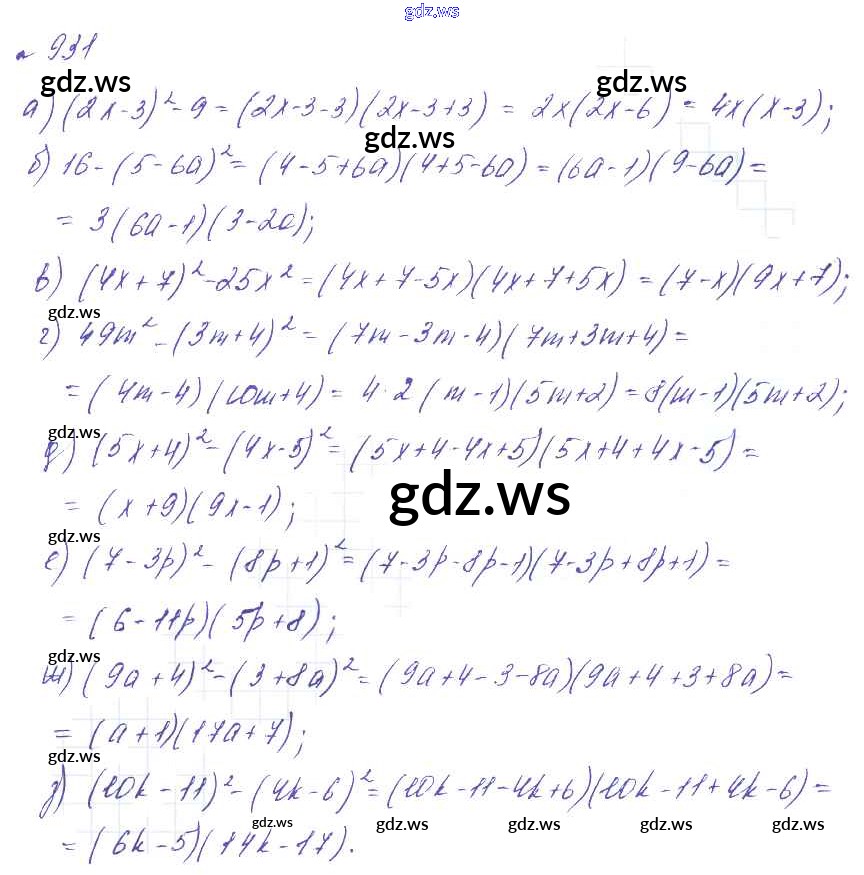 gdz.ws
№ 931
gdz.ws gdz.ws
а) (2x-3)² - 9 = (2x-3-3)(2x-3+3) = 2x(2x-6) = 4x(x-3);
gdz.ws
б) 16 - (5-6a)² = (4-5+6a)(4+5-6a) = (6a-1)(9-6a) =
= 3(6a-1)(3-2a);
в) (4x+7)² - 25x² = (4x+7-5x)(4x+7+5x) = (7-x)(9x+7);
gdz.ws
г) 49m² - (3m+4)² = (7m-3m-4)(7m+3m+4) =
= (4m-4)(10m+4) = 4·2(m-1)(5m+2) = 8(m-1)(5m+2);
gdz.ws
д) (5x+4)² - (4x-5)² = (5x+4-4x+5)(5x+4+4x-5) =
gdz.ws
= (x+9)(9x-1);
gdz.ws
е) (7-3p)² - (8p+1)² = (7-3p-8p-1)(7-3p+8p+1) =
= (6-11p)(5p+8);
gdz.ws
ж) (9a+4)² - (3+8a)² = (9a+4-3-8a)(9a+4+3+8a) =
= (a+1)(17a+7);
gdz.ws
з) (10k-11)² - (4k-6)² = (10k-11-4k+6)(10k-11+4k-6) =
gdz.ws gdz.ws gdz.ws gdz.ws gdz.ws
= (6k-5)(14k-17).